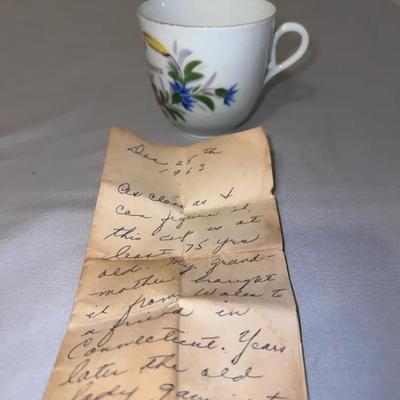 Dec 25th
1963
As close as I
can figure it,
this cup is at
least 75 yrs
old. My grand-
mother brought
it from Wales to
a friend in
Connecticut. Years
later the old
lady gave it